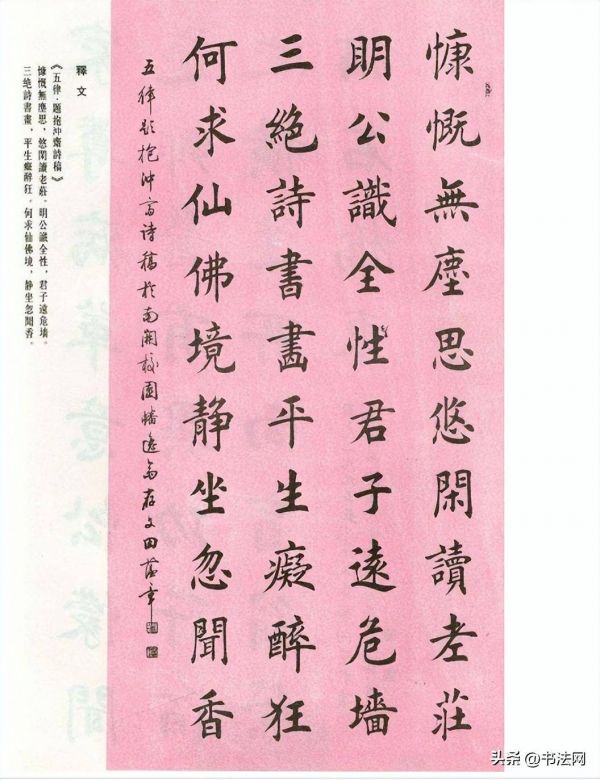 慷慨無塵思悠閑讀老莊
明公識全性君子遠危墻
三絶詩書畫平生癡醉狂
何求仙佛境静坐忽聞香
五律题抱冲斋诗稿於南開校園田蕴章
釋文
《五律·題抱沖齋詩稿》
慷慨無塵思，悠閑讀老莊。明公識全性，君子遠危墻。
三绝詩書畫，平生癡醉狂。何求仙佛境，静坐忽聞香。
头条 @书法网